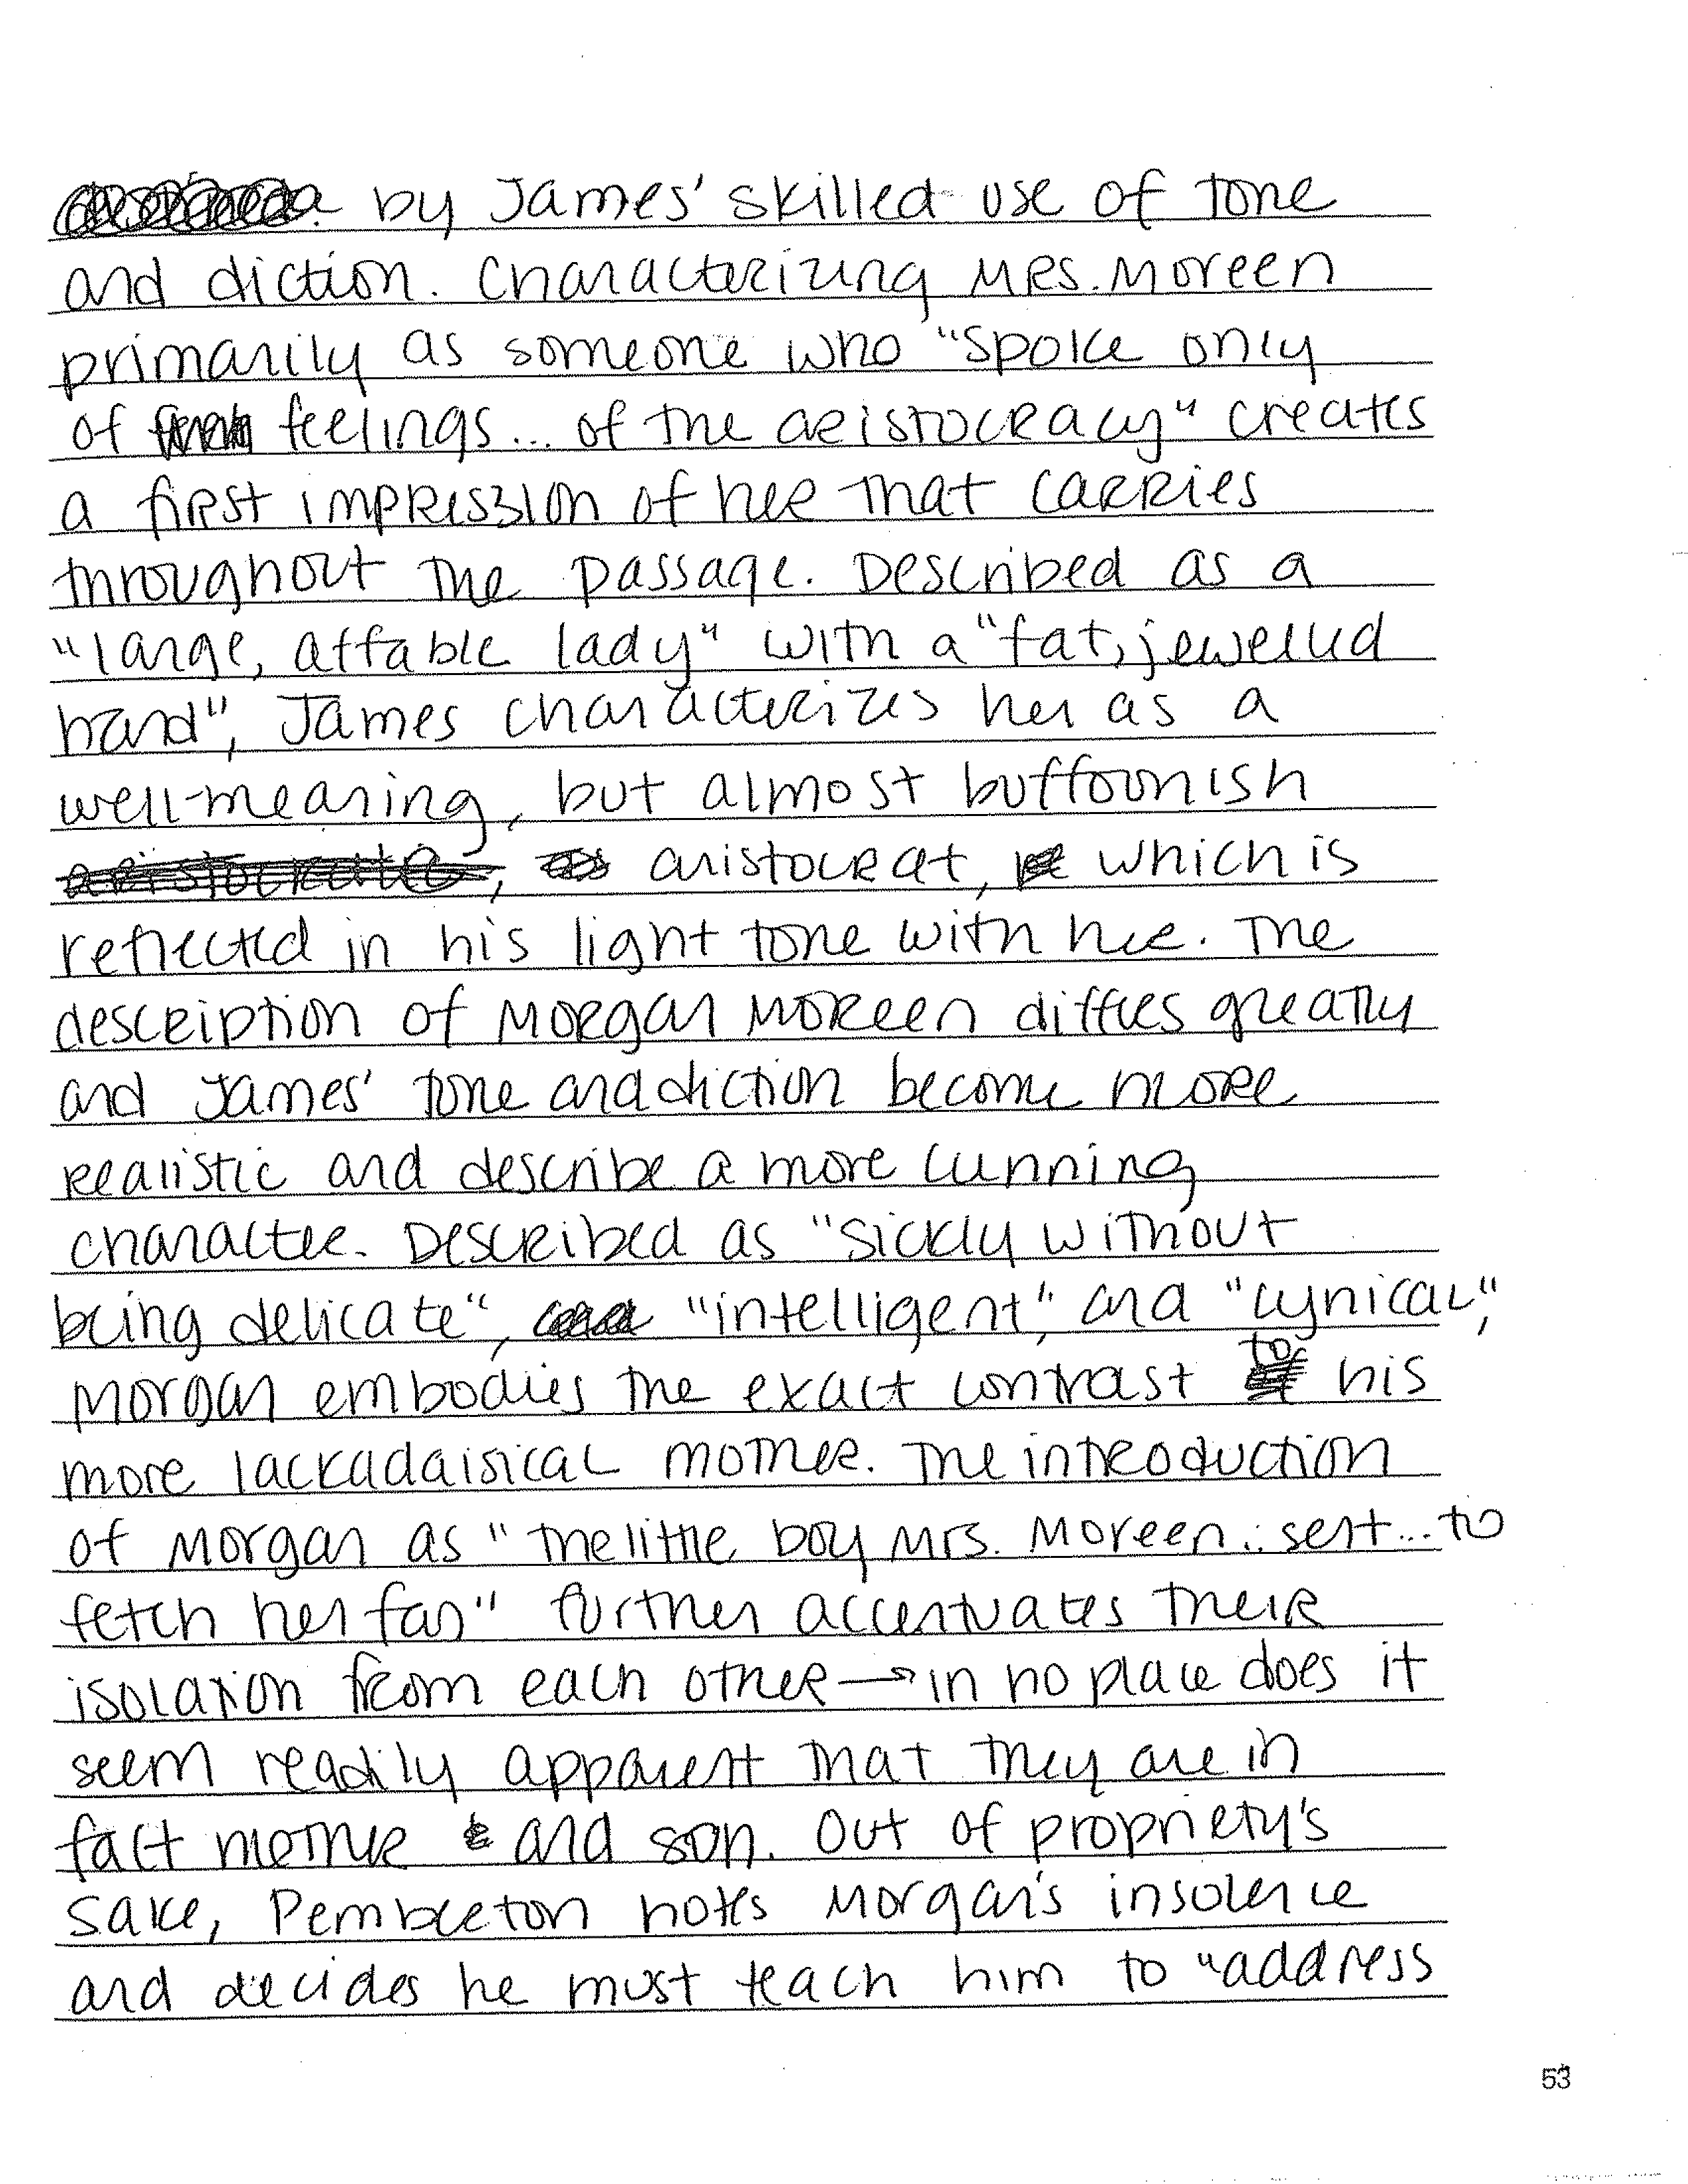 by James' skilled use of tone
and diction. Characterizing Mrs. Moreen
primarily as someone who "spoke only
of feelings... of the aristocracy" creates
a first impression of her that carries
throughout the passage. Described as a
"large, affable lady" with a "fat, jewelled
hand", James characterizes her as a
well-meaning, but almost buffoonish
aristocrat, which is
reflected in his light tone with her. The
description of Morgan Moreen differs greatly
and James' tone and diction become more
realistic and describe a more cunning
character. Described as "sickly without
being delicate", "intelligent", and "cynical",
Morgan embodies the exact contrast to his
more lackadaisical mother. The introduction
of Morgan as "the little boy Mrs. Moreen... sent... to
fetch her fan" further accentuates their
isolation from each other → in no place does it
seem readily apparent that they are in
fact mother and son. Out of propriety's
sake, Pembleton notes Morgan's insolence
and decides he must teach him to "address
53